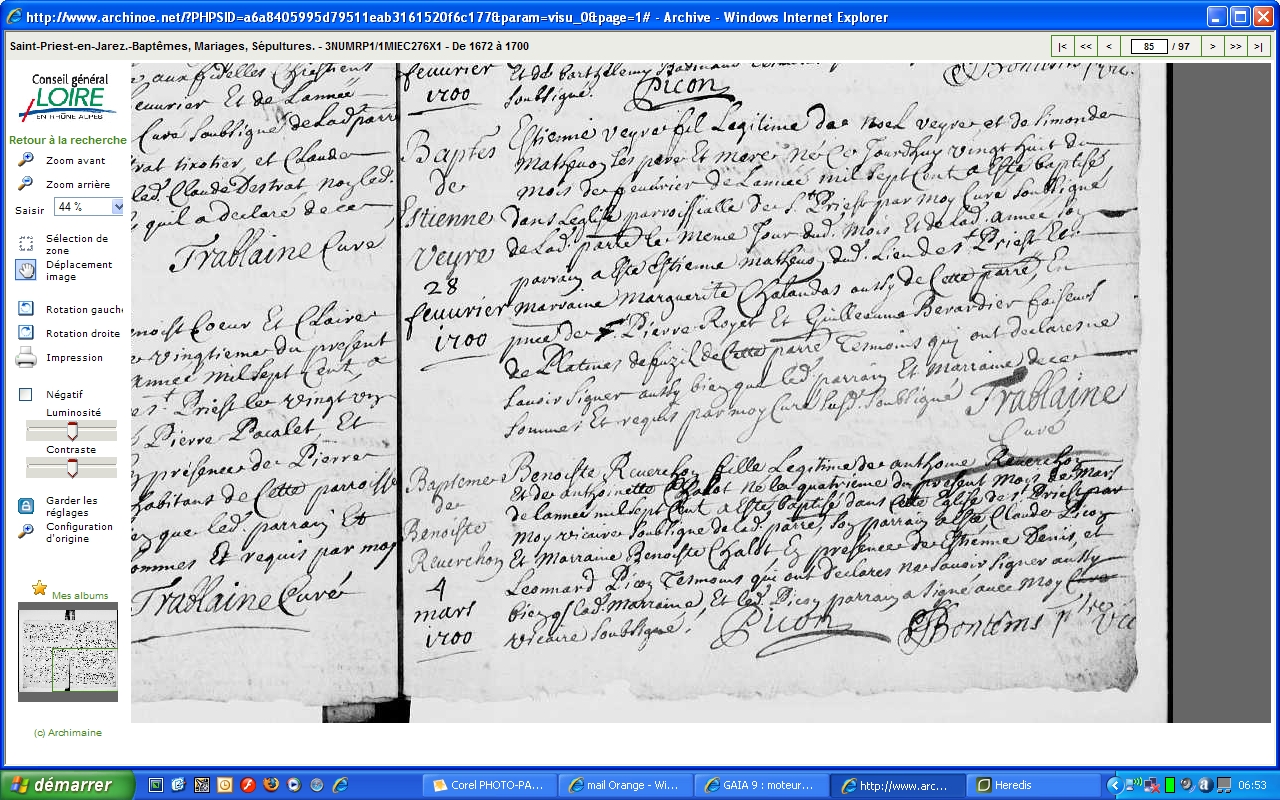 http://www.archinoe.net/?PHPSID=a6a8405995d79511eab3161520f6c177&param=visu_0&page=1# - Archive - Windows Internet Explorer
Saint-Priest-en-Jarez.-Baptêmes, Mariages, Sépultures. - 3NUMRP1/1MIEC276X1 - De 1672 à 1700
|< << < 85 / 97 > >> >|
Conseil général
LOIRE
EN RHÔNE ALPES
Retour à la recherche
Zoom avant
Zoom arrière
Saisir 44 %
Sélection de
zone
Déplacement
image
Rotation gauche
Rotation droite
Impression
Négatif
Luminosité
Contraste
Garder les
réglages
Configuration
d'origine
Mes albums
(c) Archimaine
aux fidelles Chrestiens
feuurier Et de Lannee
Curé Soubsigné de Lad parre
trat tixotier, et Claude
led. Claude Destrat
quil a declaré de ce
Trablaine Curé
enoist Coeur Et Claire
vingtieme du present
annee mil sept Cent a
st Priest le vingt
Pierre Pacalet Et
presence de Pierre
habitans de Cette parroisse
que led. parrain Et
sommes Et requis par moy
Trablaine Curé
feuurier
1700
Et de barthelemy
soubsigne. Picon Bontems
Baptes
de
Estienne
Veyre
28
feuurier
1700
Estienne Veyre fil Legitime de Noel Veyre et de Simonde
Matheuon les pere Et mere Né Ce Jourdhuy vingt huit du
mois de feuurier de Lannee mil sept Cent a Este baptisé
dans Leglise parroissialle de St Priest par moy Curé soubsigné
de Lad. parre le meme Jour dud. mois Et de lad. annee son
parrain a Este Estienne Matheuon dud. Lieu de st Priest Et
marraine Marguerite Chalandas aussy de Cette parre, En
pnce de Sr Pierre Royet Et Guilleaume Berardier faiseurs
de Platines de fuzil de Cette parre Tesmoins qui ont declares ne
sauoir signer aussy bien que led. parrain Et Marraine de ce
sommes Et requis par moy Curé susd. soubsigné Trablaine
Curé
Baptemere
de
Benoiste
Reuerchon
4
mars
1700
Benoiste Reuerchon fille Legitime de anthoine Reuerchon
Et de anthoinette Chalot né le quatrieme du present mois de mars
de lannee mil sept Cent a Este baptisé dans Cette Eglise de st Priest par
moy vicaire soubsigne de lad. parre, son parrain a Este Claude Picon
Et Marraine Benoiste Chalot En presence de Estienne Denis, et
Leonnard Picon Tesmoins qui ont declares ne sauoir signer aussy
bien q lad. Marraine, Et led. Picon parrain a signé auec moy Curé
vicaire soubsigné. Picon Bontems ptre vic
démarrer
Corel PHOTO-PA...
mail Orange - Wi...
GAIA 9 : moteur...
http://www.arc...
Heredis
06:53